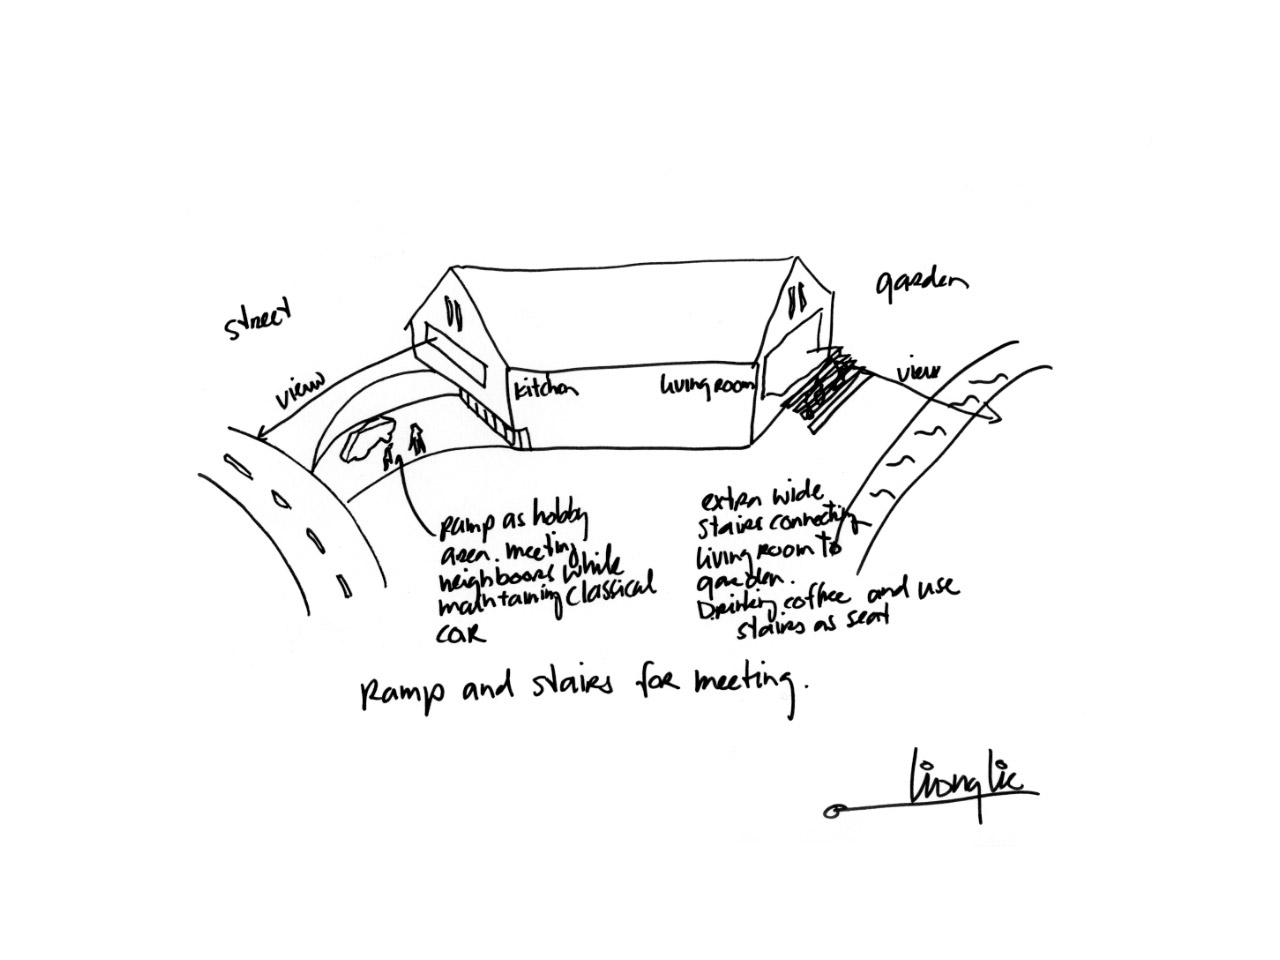 street
garden
view
view
kitchen
living room
Ramp as hobby
area. meeting
neighboors while
maintaining classical
car
extra wide
stairs connecting
living room to
garden.
Drinking coffee and use
stairs as seat
Ramp and stairs for meeting.
liong lie